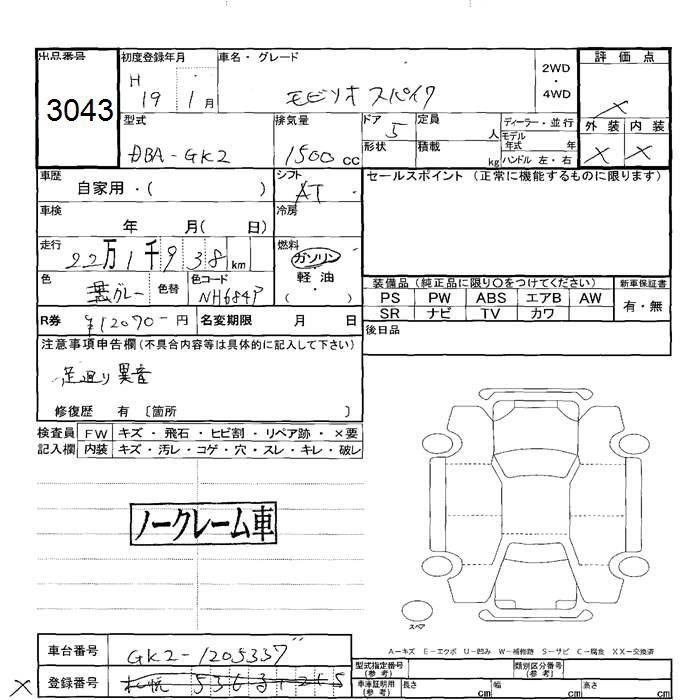 出品番号
3043
初度登録年月
H
19 1 月
車名・グレード
モビリオ スパイク
2WD
・
4WD
評価点
×
外装 内装
× ×
型式
DBA-GK2
排気量
1500 cc
ドア
5
形状
定員
人
積載
kg
ディーラー・並行
モデル
年式 年
ハンドル 左・右
車歴
自家用・( )
シフト
AT
セールスポイント (正常に機能するものに限ります)
車検
年 月( 日)
冷房
走行
22万1千938km
燃料
ガソリン
軽油
( )
色
グレー
色替
色コード
NH684P
装備品 (純正品に限り〇をつけてください)
PS PW ABS エアB AW
SR ナビ TV カワ
新車保証書
有・無
R券 ¥12070-円
名変期限 月 日
後日品
注意事項申告欄(不具合内容等は具体的に記入して下さい)
足廻り異音
修復歴 有 〔箇所 〕
検査員
記入欄
FW キズ・飛石・ヒビ割・リペア跡・×要
内装 キズ・汚レ・コゲ・穴・スレ・キレ・破レ
ノークレーム車
スペア
A-キズ E-エクボ U-凹み W-補修跡 S-サビ C-腐食 XX-交換済
車台番号 GK2-1205337
× 登録番号 札幌
型式指定番号
(参考)
類別区分番号
(参考)
車庫証明用
(参考)
長さ cm
幅 cm
高さ cm